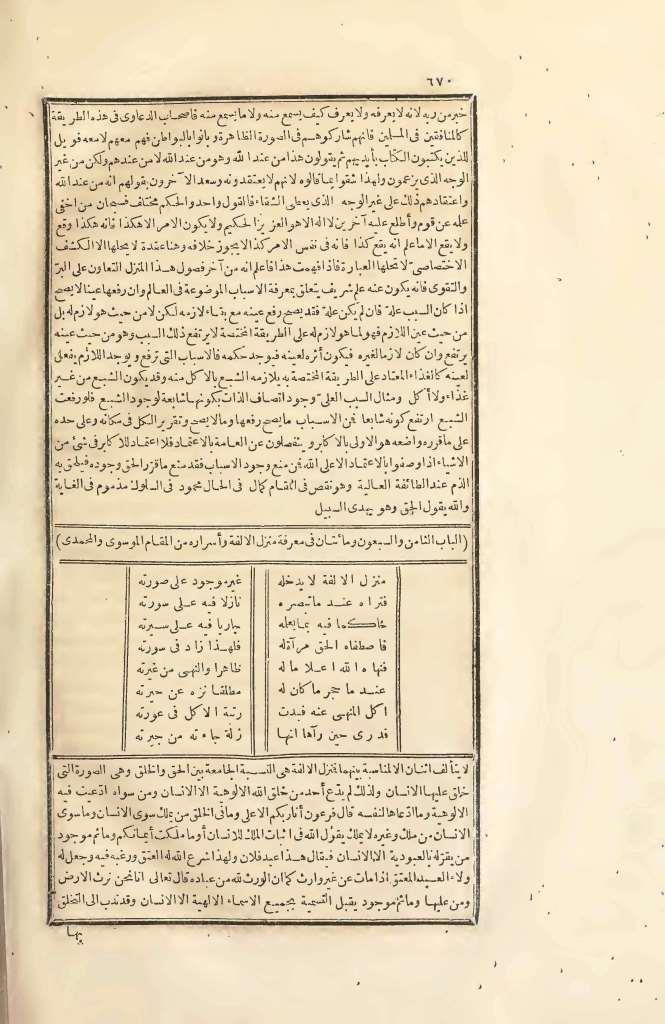 ٦٧٠
خبر من ربه لانه لا يعرفه ولا يعرف كيف يسمع منه ولا ما يسمع منه فأصحاب الدعاوى فى هذه الطريقة
كالمنافقين فى المسلمين فانهم شاركوهم فى الصورة الظاهرة وبانوا بالبواطن فهم معهم لا معه فويل
للذين يكتبون الكتاب بأيديهم ثم يقولون هذا من عند الله وهو من عند الله لا من عندهم ولكن من غير
الوجه الذى يزعمون ولهذا شقوا بما قالوه لانهم لا يعتقدونه وسعد الآخرون بقولهم انه من عند الله
واعتقادهم ذلك على غير الوجه الذى به على الشقاء فالقول واحد والحكم مختلف فسبحان من اخفى
علمه عن قوم وأطلع عليه آخرين لا اله الا هو العزيز الحكيم ولا يكون الامر الا هكذا فانه هكذا وقع
ولا يقع الا ما علم انه يقع كذا فانه فى نفس الامر كذا لا يجوز خلافه وهنا عقدة لا يحلها الا الكشف
الاختصاصى لا تحلها العبارة فاذا فهمت هذا فاعلم انه من آخر فصول هذا المنزل التعاون على البرّ
والتقوى فانه يكون عنه علم شريف يتعلق بمعرفة الاسباب الموضوعة فى العالم وان رفعها عينا لا يصح
اذا كان السبب علة فان لم يكن علة فقد يصح رفع عينه مع بقاء لازمه لكن لا من حيث هو لازم له بل
من حيث عين اللازم فهو لما هو لازم له على الطريقة المختصة لا يرتفع ذلك السبب وهو من حيث عينه
يرتفع وان كان لازما لغيره فيكون أثره لعينه فيوجد حكمه فالاسباب التى ترفع ويوجد اللازم يفعل
لعينه كالغذاء المعتاد على الطريقة المختصة به يلازمه الشبع بالاكل منه وقد يكون الشبع من غير
غذاء ولا أكل ومثال السبب العلىّ وجود اتصاف الذات بكونها شابعة لوجود الشبع فلو رفعت
الشبع ارتفع كونه شابعا فمن الاسباب ما يصح رفعها وما لا يصح وتقرير الكل فى مكانه وعلى حده
على ما قرره واضعه هو الاولى بالاكابر وينفصلون عن العامة بالاعتماد فلا اعتماد للاكابر فى شئ من
الاشياء اذا وصفوا بالاعتماد الا على الله فمن منع وجود الاسباب فقد منع ما قرّر الحق وجوده فيلحق به
الذم عند الطائفة العالية وهو نقص فى المقام كمال فى الحال محمود فى السلوك مذموم فى الغاية
والله يقول الحق وهو يهدى السبيل
(الباب الثامن والسبعون ومائتان فى معرفة منزل الالفة وأسراره من المقام الموسوى والمحمدى)
منزل الالفة لا يدخله غير موجود على صورته
فتراه عند ما تبصره نازلا فيه على سورته
حاكما فيه بما يعلمه جاريا فيه على سيرته
فاصطفاه الحق مرآة له فلهذا زاد فى سورته
فنهاه الله اعلا ما له ظاهرا والنهى من غيرته
عند ما حجر ما كان له مطلقا نزه عن حيرته
اكل المنهى عنه فبدت رتبة الاكل فى عورته
فدرى حين رآها انها زلة جاءته من جيرته
لا يتألف اثنان الا لمناسبة بينهما فمنزل الالفة هى النسبة الجامعة بين الحق والخلق وهى الصورة التى
خلق عليها الانسان ولذلك لم يدّع أحد من خلق الله الالوهية الا الانسان ومن سواه ادّعيت فيه
الالوهية وما ادّعاها لنفسه قال فرعون أنا ربكم الاعلى وما فى الخلق من يملك سوى الانسان وما سوى
الانسان من ملك وغيره لا يملك يقول الله فى اثبات الملك للانسان أو ما ملكت أيمانكم وما ثم موجود
من يقرّ له بالعبودية الا الانسان فيقال هذا عبد فلان ولهذا شرع الله له العتق ورغبه فيه وجعل له
ولاء العبد المعتق اذا مات عن غير وارث كما ان الورث لله من عباده قال تعالى انا نحن نرث الارض
ومن عليها وما ثم موجود يقبل التسمية بجميع الاسماء الالهية الا الانسان وقد ندب الى التخلق
بها